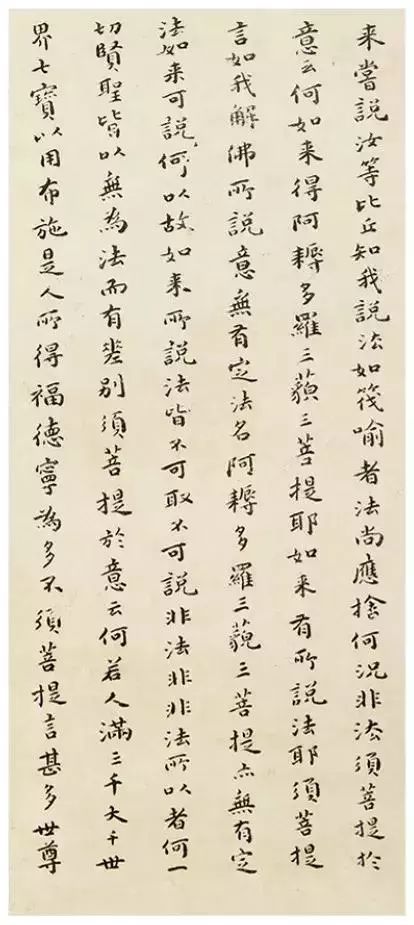 来嘗說汝等比丘知我說法如筏喻者法尚應捨何況非法須菩提於
意云何如来得阿耨多羅三藐三菩提耶如来有所說法耶須菩提
言如我解佛所說意無有定法名阿耨多羅三藐三菩提亦無有定
法如来可說何以故如来所說法皆不可取不可說非法非非法所以者何一
切賢聖皆以無為法而有差别須菩提於意云何若人滿三千大千世
界七寶以用布施是人所得福德寧為多不須菩提言甚多世尊